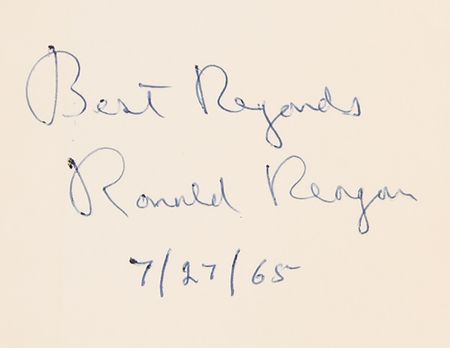 Best Regards
Ronald Reagan
7/27/65